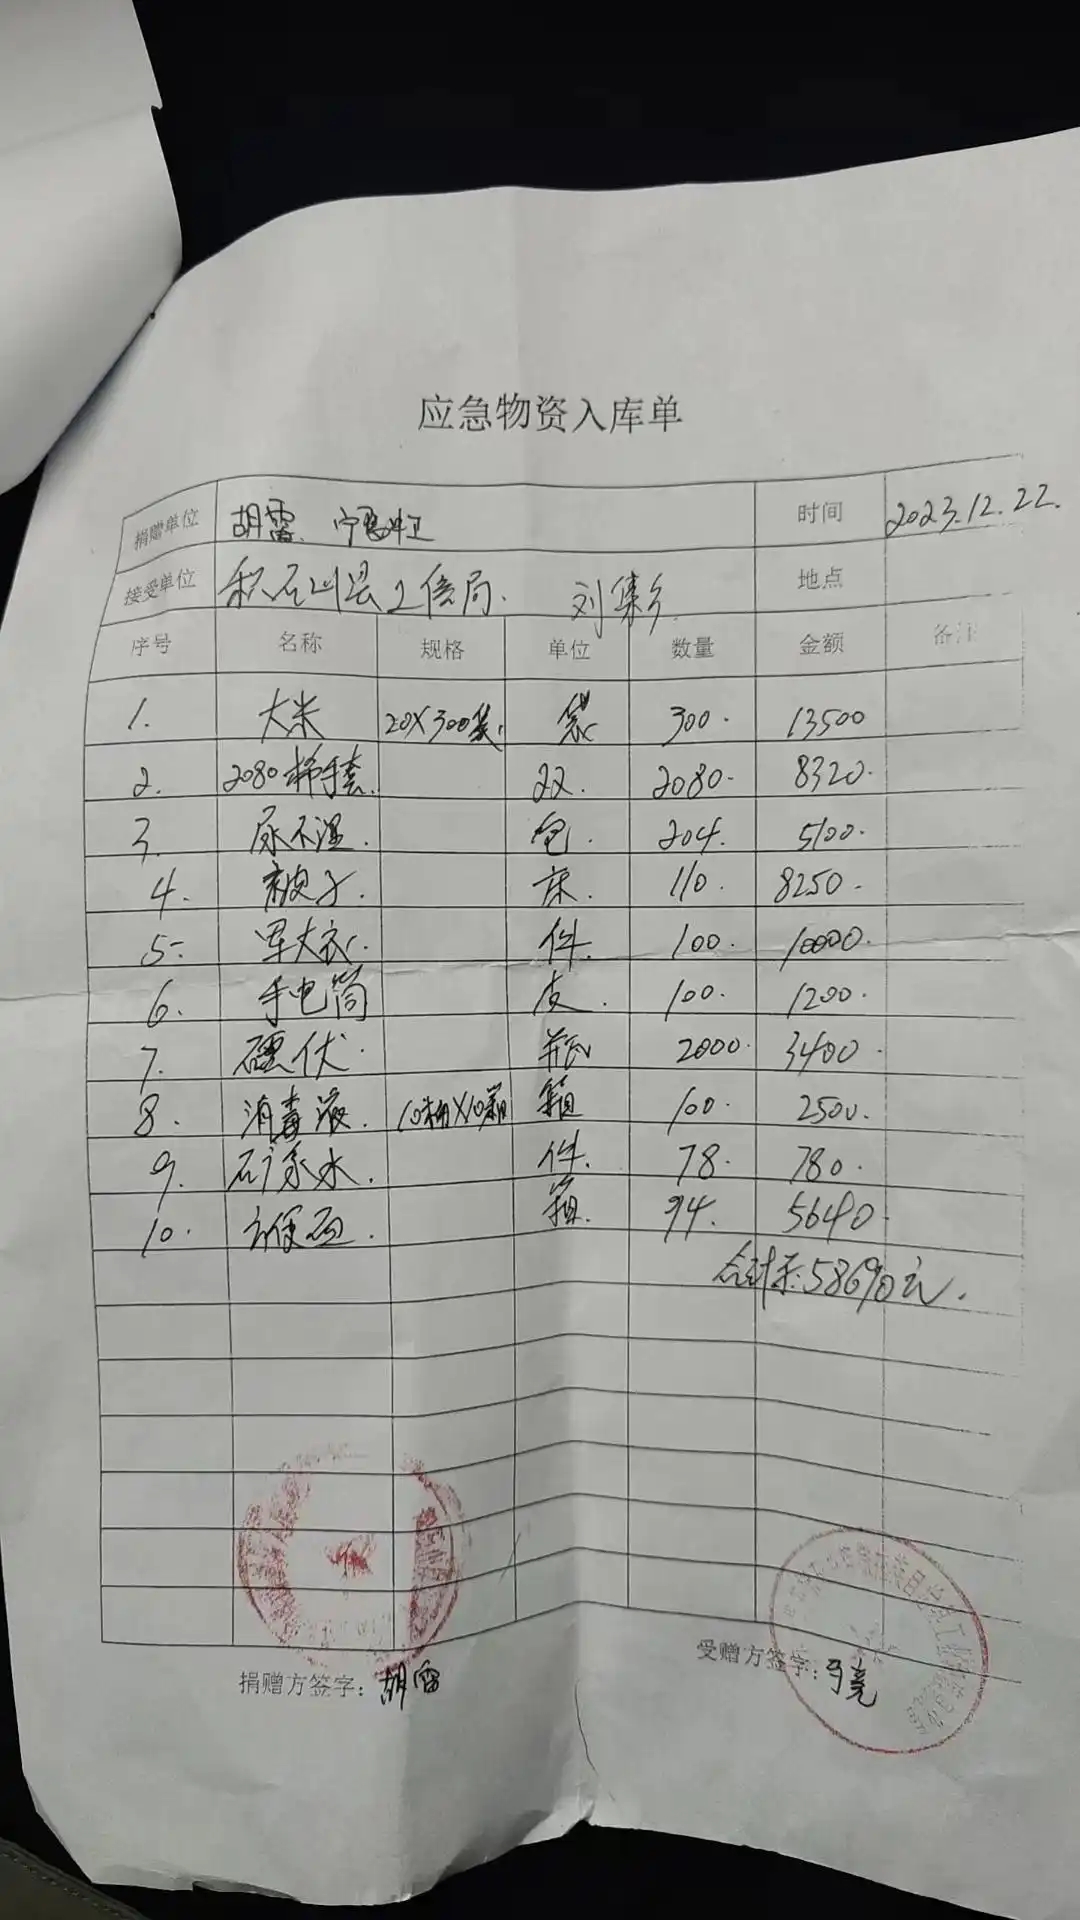 应急物资入库单
捐赠单位 胡雷 宁夏中卫 时间 2023.12.22.
接受单位 积石山县工信局. 刘集乡 地点
序号 名称 规格 单位 数量 金额 备注
1. 大米 20X300袋. 袋 300. 13500
2. 2080棉手套. 双. 2080. 8320.
3. 尿不湿. 包. 204. 5100.
4. 被子. 床. 110. 8250.
5. 军大衣. 件. 100. 10000.
6. 手电筒 皮. 100. 1200.
7. 碘伏. 瓶 2000. 3400.
8. 消毒液. 箱 100. 2500.
9. 矿泉水. 件. 78. 780.
10. 方便面. 箱. 94. 5640.
合计: 58690元.
捐赠方签字: 胡雷
受赠方签字: